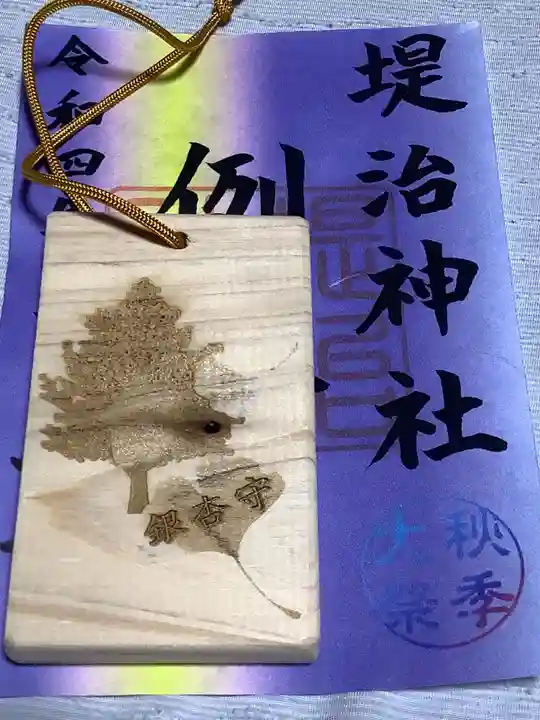 堤治神社
例
令和四
秋季
大祭
銀杏守